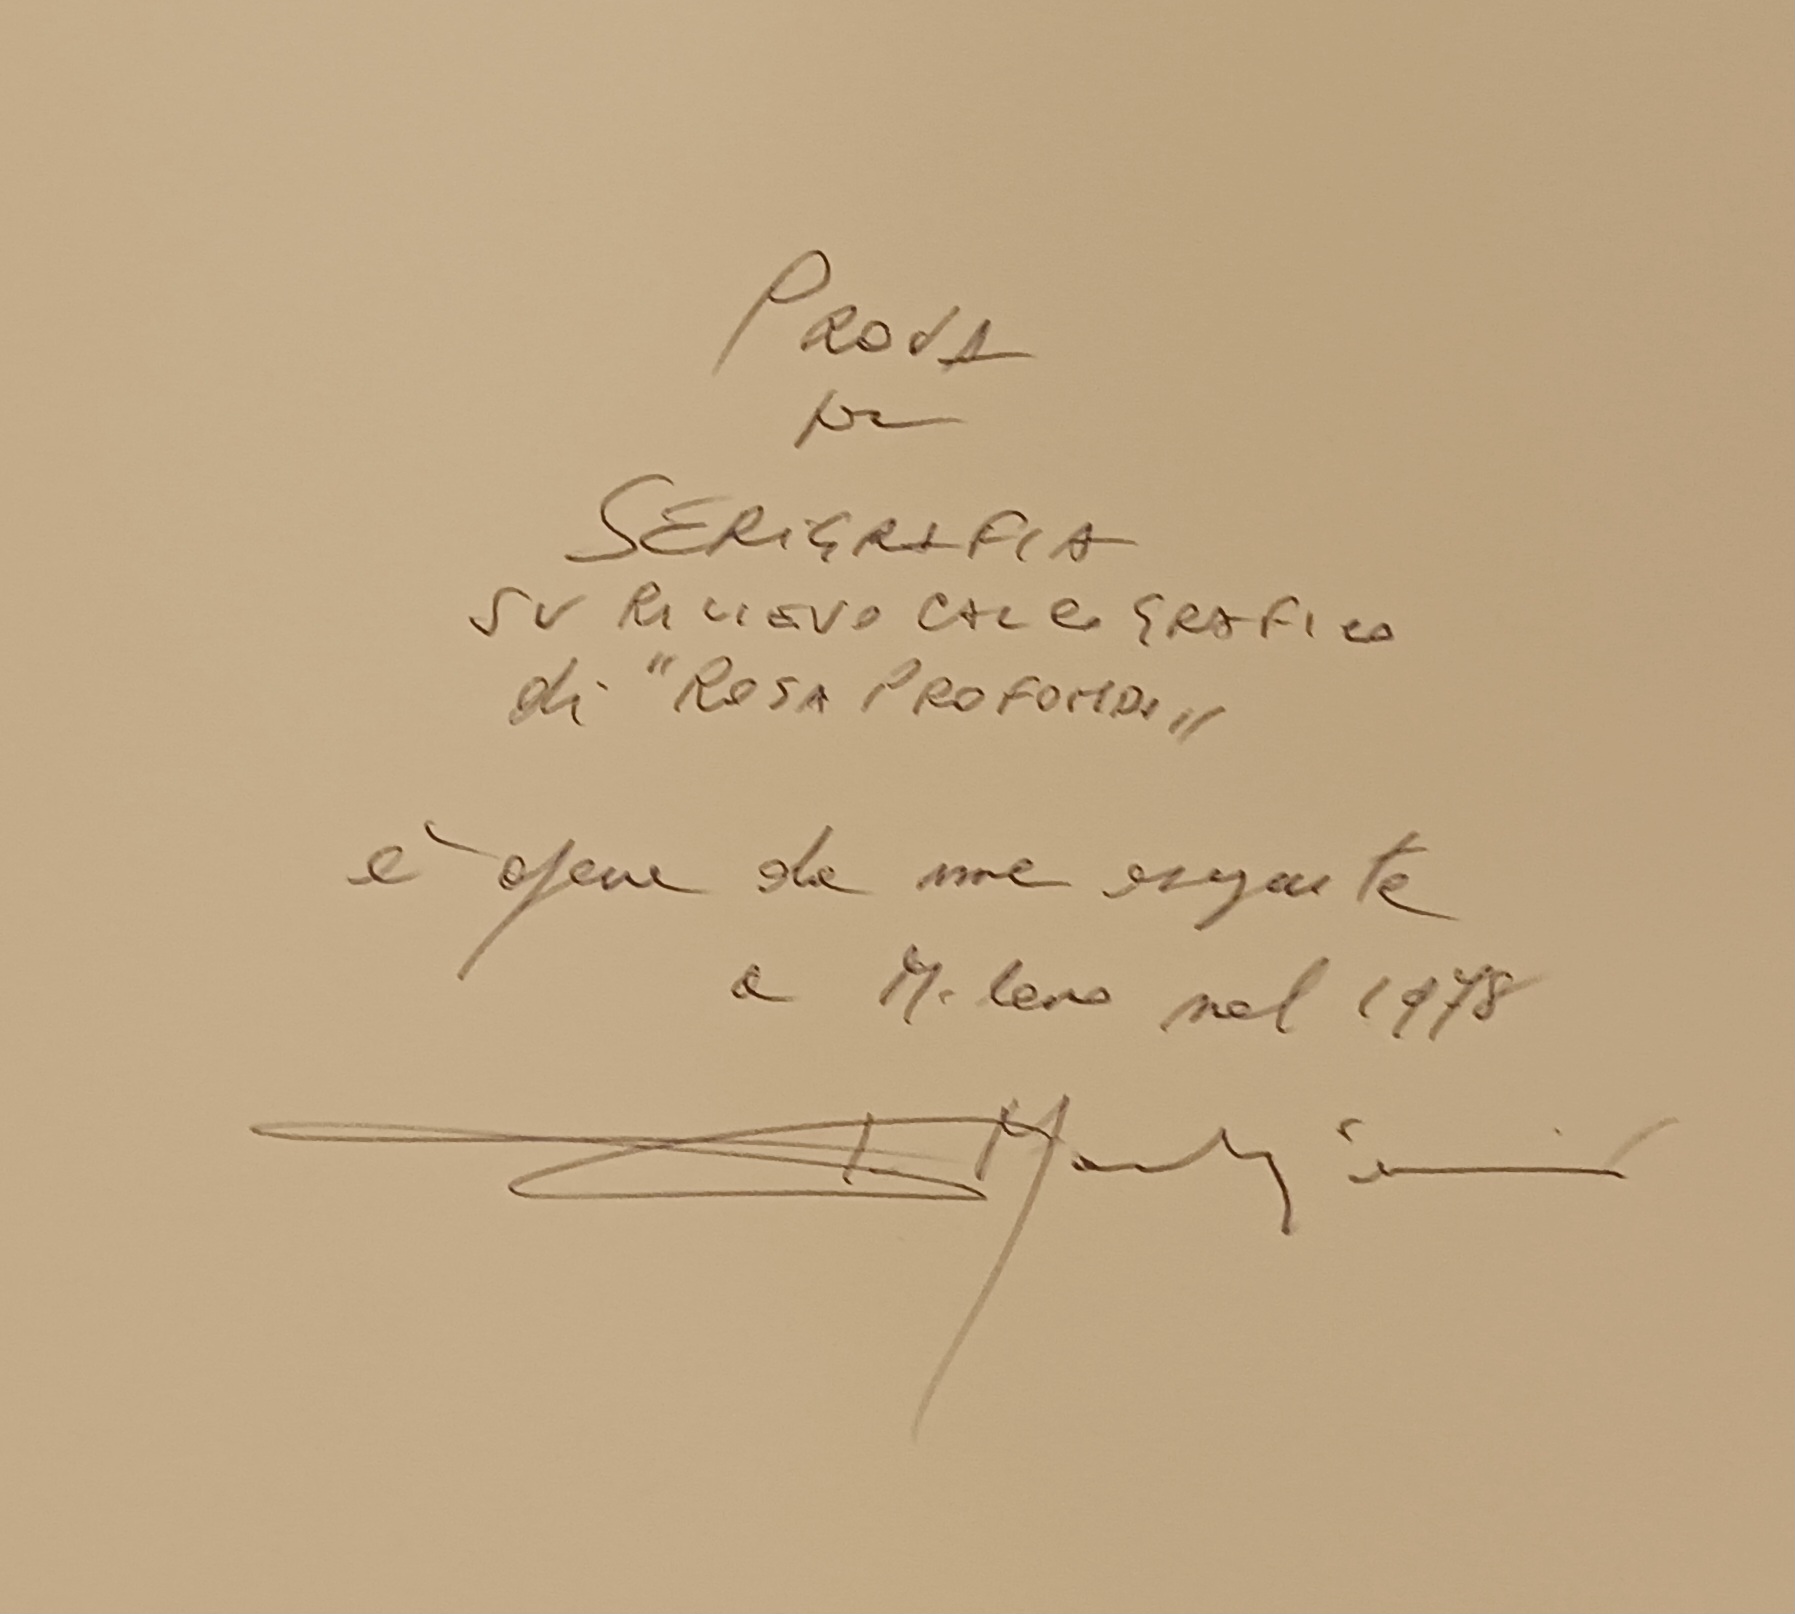 PROVA
per
SERIGRAFIA
SU RILIEVO CALCOGRAFICO
di "ROSA PROFONDA"
è opera da me eseguita
a Milano nel 1978